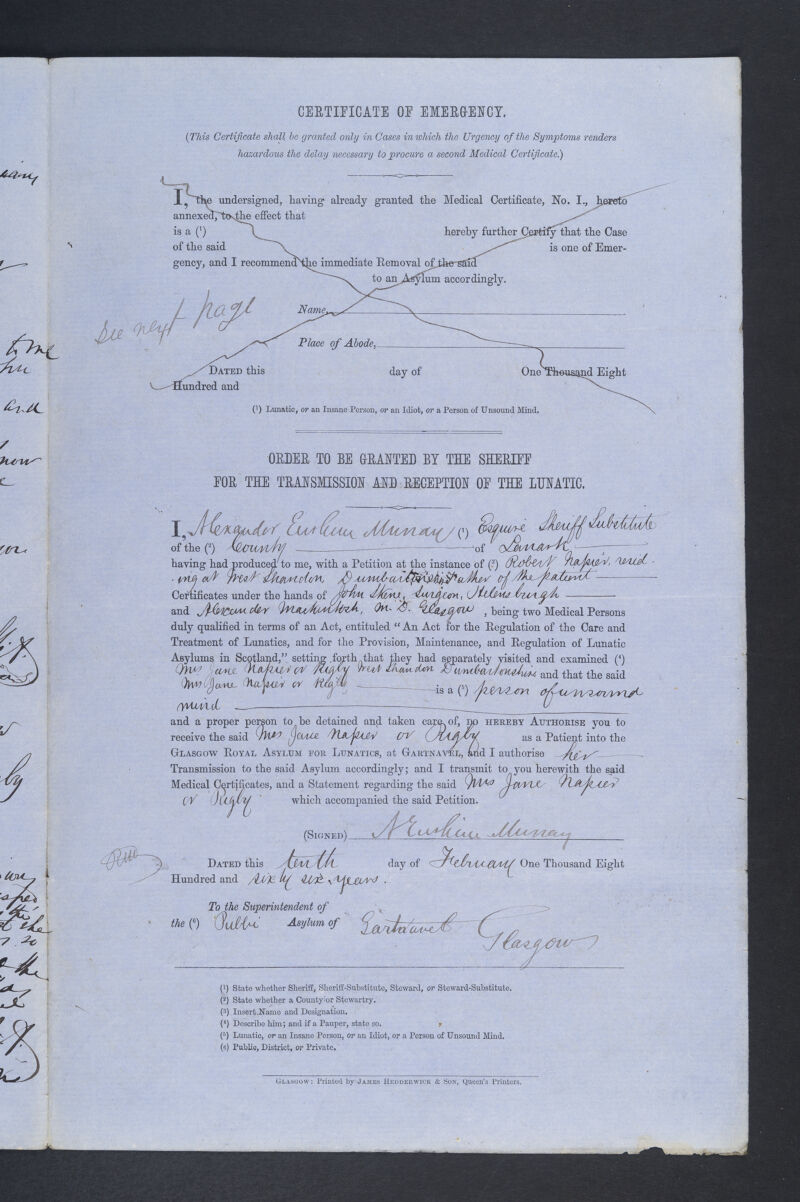 CERTIFICATE OF EMERGENCY.
(This Certificate shall be granted only in Cases in which the Urgency of the Symptoms renders
hazardous the delay necessary to procure a second Medical Certificate.)
I, the undersigned, having already granted the Medical Certificate, No. I., hereto
annexed, to the effect that
is a (¹) hereby further Certify that the Case
of the said is one of Emer-
gency, and I recommend the immediate Removal of the said
to an Asylum accordingly.
See next page
Name,
Place of Abode,
DATED this day of One Thousand Eight
Hundred and
(¹) Lunatic, or an Insane Person, or an Idiot, or a Person of Unsound Mind.
ORDER TO BE GRANTED BY THE SHERIFF
FOR THE TRANSMISSION AND RECEPTION OF THE LUNATIC.
I, Alexander Erskine Murray (¹) Esquire Sheriff Substitute
of the (²) County of Lanark
having had produced to me, with a Petition at the instance of (³) Robert Napier, resid-
ing at West Shandon Dumbartonshire father of the patient
Certificates under the hands of John Skine, Surgeon, Helensburgh
and Alexander Mackintosh, M.D. Glasgow, being two Medical Persons
duly qualified in terms of an Act, entituled "An Act for the Regulation of the Care and
Treatment of Lunatics, and for the Provision, Maintenance, and Regulation of Lunatic
Asylums in Scotland," setting forth that they had separately visited and examined (⁴)
Mrs Jane Napier or Rigby West Shandon Dumbartonshire and that the said
Mrs Jane Napier or Rigby is a (⁵) person of unsound
mind
and a proper person to be detained and taken care of, DO HEREBY AUTHORISE you to
receive the said Mrs Jane Napier or Rigby as a Patient into the
GLASGOW ROYAL ASYLUM FOR LUNATICS, at GARTNAVEL, and I authorise her
Transmission to the said Asylum accordingly; and I transmit to you herewith the said
Medical Certificates, and a Statement regarding the said Mrs Jane Napier
or Rigby which accompanied the said Petition.
(SIGNED) A Erskine Murray
DATED this tenth day of February One Thousand Eight
Hundred and sixty six years.
To the Superintendent of
the (⁶) Public Asylum of Gartnavel
Glasgow
(¹) State whether Sheriff, Sheriff-Substitute, Steward, or Steward-Substitute.
(²) State whether a County or Stewartry.
(³) Insert Name and Designation.
(⁴) Describe him; and if a Pauper, state so.
(⁵) Lunatic, or an Insane Person, or an Idiot, or a Person of Unsound Mind.
(⁶) Public, District, or Private.
GLASGOW: Printed by JAMES HEDDERWICK & SON, Queen's Printers.